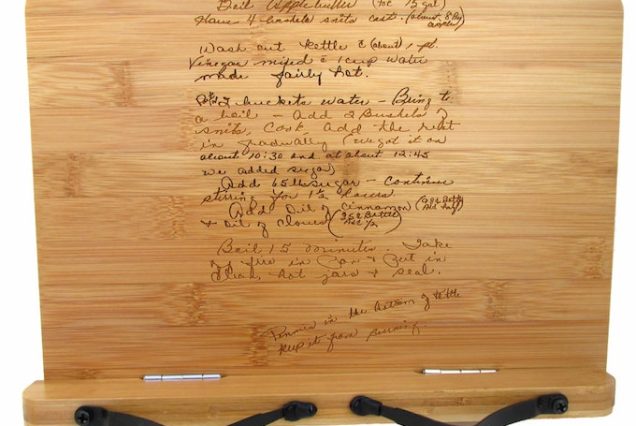 Boil Apple butter (for 15 gal)
Have 4 bushels snits cut. (about 8 Bu apples)
Wash out kettle & (about) 1 pt.
Vinegar mixed & 1 cup water
made fairly hot.
Put 2 buckets water - Bring to
a boil - add 2 Bushels of
snits, Cook. Add the rest
in gradually (we got it on
about 10:30 and at about 12:45
we added sugar)
Add 65 lb sugar - continue
stirring for 1½ hours
Add Oil of Cinnamon
& Oil of Cloves
Boil 15 minutes. Take
off fire in Pan & Put in
clean, hot jars & seal.
Pennies in the bottom of kettle
keep it from burning.